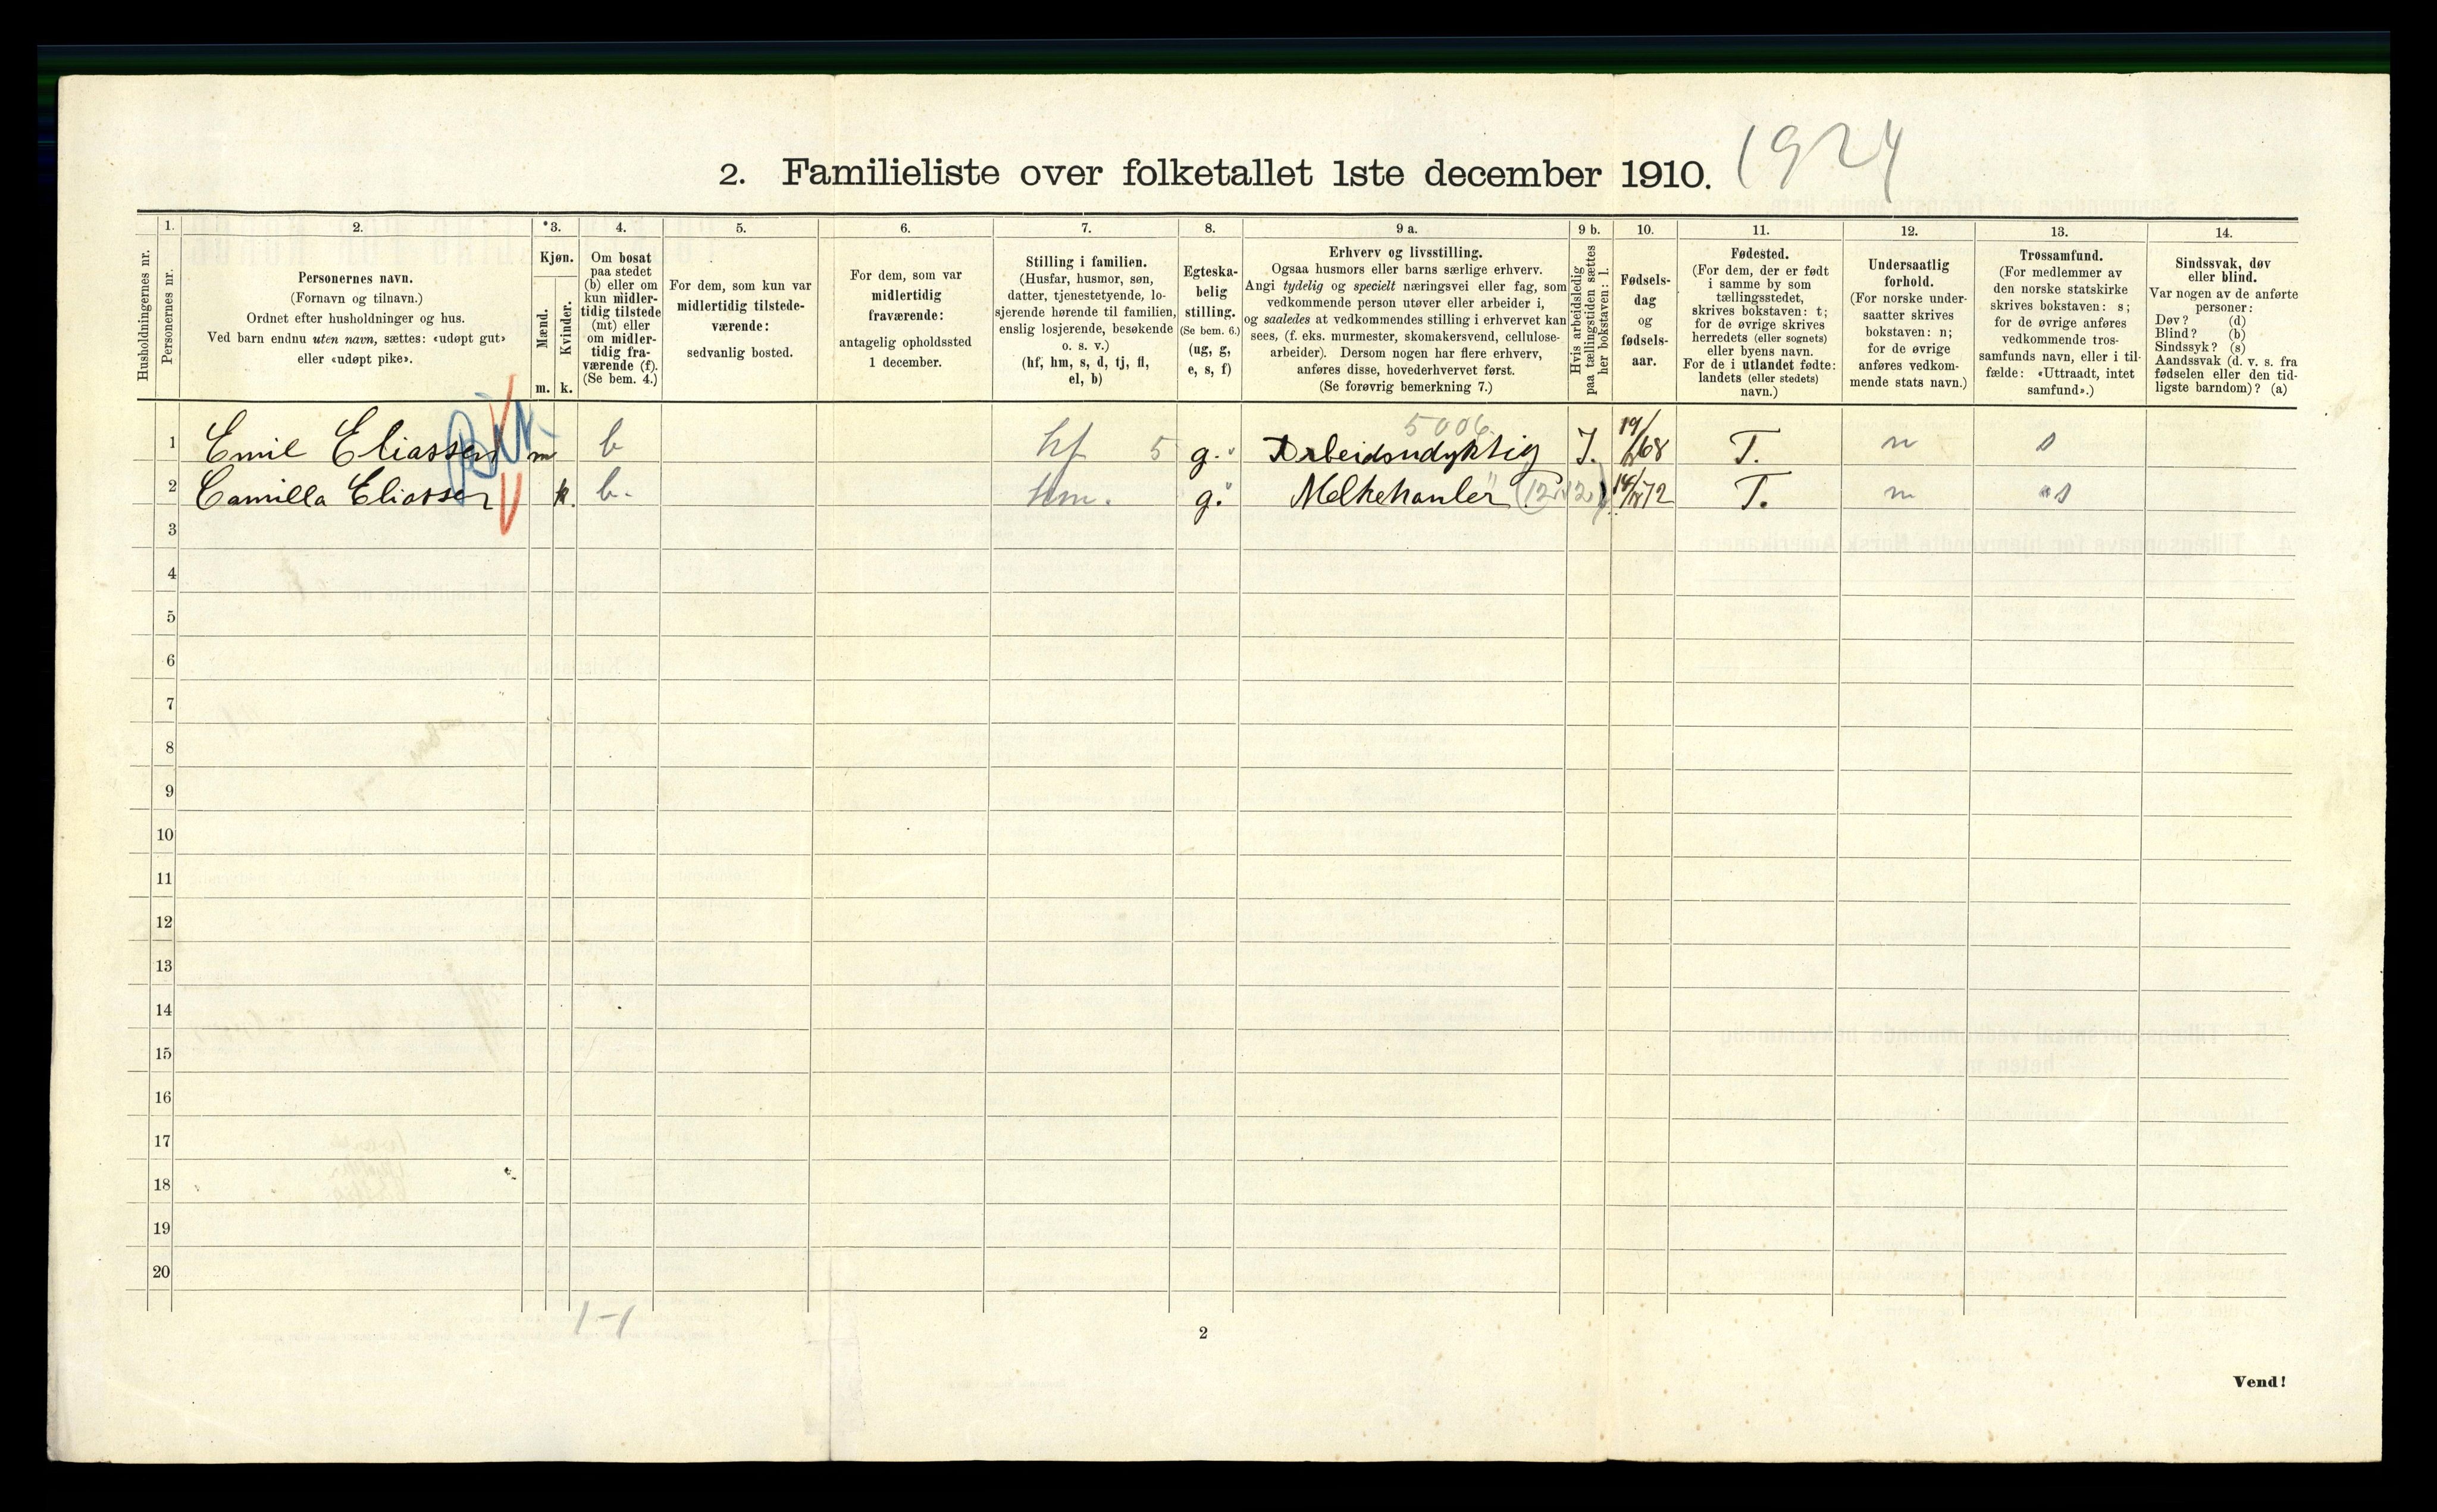 2. Familieliste over folketallet 1ste december 1910. 1924
Husholdningernes nr.
1.
Personernes nr.
2.
Personernes navn.
(Fornavn og tilnavn.)
Ordnet efter husholdninger og hus.
Ved barn endnu uten navn, sættes: «udøpt gut»
eller «udøpt pike».
*3.
Kjøn.
Mænd.
Kvinder.
m. k.
4.
Om bosat
paa stedet
(b) eller om
kun midler-
tidig tilstede
(mt) eller
om midler-
tidig fra-
værende (f).
(Se bem. 4.)
5.
For dem, som kun var
midlertidig tilstede-
værende:
sedvanlig bosted.
6.
For dem, som var
midlertidig
fraværende:
antagelig opholdssted
1 december.
7.
Stilling i familien.
(Husfar, husmor, søn,
datter, tjenestetyende, lo-
sjerende hørende til familien,
enslig losjerende, besøkende
o. s. v.)
(hf, hm, s, d, tj, fl,
el, b)
8.
Egteska-
belig
stilling.
(Se bem. 6.)
(ug, g,
e, s, f)
9 a.
Erhverv og livsstilling.
Ogsaa husmors eller barns særlige erhverv.
Angi tydelig og specielt næringsvei eller fag, som
vedkommende person utøver eller arbeider i,
og saaledes at vedkommendes stilling i erhvervet kan
sees, (f. eks. murmester, skomakersvend, cellulose-
arbeider). Dersom nogen har flere erhverv,
anføres disse, hovederhvervet først.
(Se forøvrig bemerkning 7.)
9 b.
Hvis arbeidsledig
paa tællingstiden sættes
her bokstaven: l.
10.
Fødsels-
dag
og
fødsels-
aar.
11.
Fødested.
(For dem, der er født
i samme by som
tællingsstedet,
skrives bokstaven: t;
for de øvrige skrives
herredets (eller sognets)
eller byens navn.
For de i utlandet fødte:
landets (eller stedets)
navn.)
12.
Undersaatlig
forhold.
(For norske under-
saatter skrives
bokstaven: n;
for de øvrige
anføres vedkom-
mende stats navn.)
13.
Trossamfund.
(For medlemmer av
den norske statskirke
skrives bokstaven: s;
for de øvrige anføres
vedkommende tros-
samfunds navn, eller i til-
fælde: «Uttraadt, intet
samfund».)
14.
Sindssvak, døv
eller blind.
Var nogen av de anførte
personer:
Døv? (d)
Blind? (b)
Sindssyk? (s)
Aandssvak (d. v. s. fra
fødselen eller den tid-
ligste barndom)? (a)
5006.
1 Emil Eliassen m b hf 5 g. Arbeidsudyktig J. 68 T. n s
2 Camilla Eliassen k. b. hm. g. Melkehanler 72 T. n s
3
4
5
6
7
8
9
10
11
12
13
14
15
16
17
18
19
20
1-1
2
Vend!